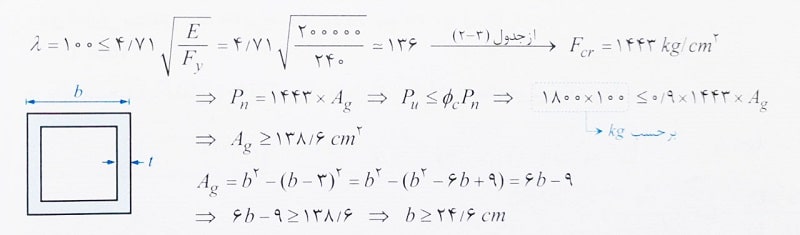 λ = ۱۰۰ ≤ ۴/۷۱ √(E/F_y) = ۴/۷۱ √(۲۰۰۰۰۰/۲۴۰) ≃ ۱۳۶ از جدول (۳-۲) → F_cr = ۱۴۴۳ kg/cm^۲
⇒ P_n = ۱۴۴۳ × A_g ⇒ P_u ≤ ϕ_c P_n ⇒ ۱۸۰۰ × ۱۰۰ ≤ ۰/۹ × ۱۴۴۳ × A_g
بر حسب kg
b
⇒ A_g ≥ ۱۳۸/۶ cm^۲
t
A_g = b^۲ − (b − ۳)^۲ = b^۲ − (b^۲ − ۶b + ۹) = ۶b − ۹
⇒ ۶b − ۹ ≥ ۱۳۸/۶ ⇒ b ≥ ۲۴/۶ cm